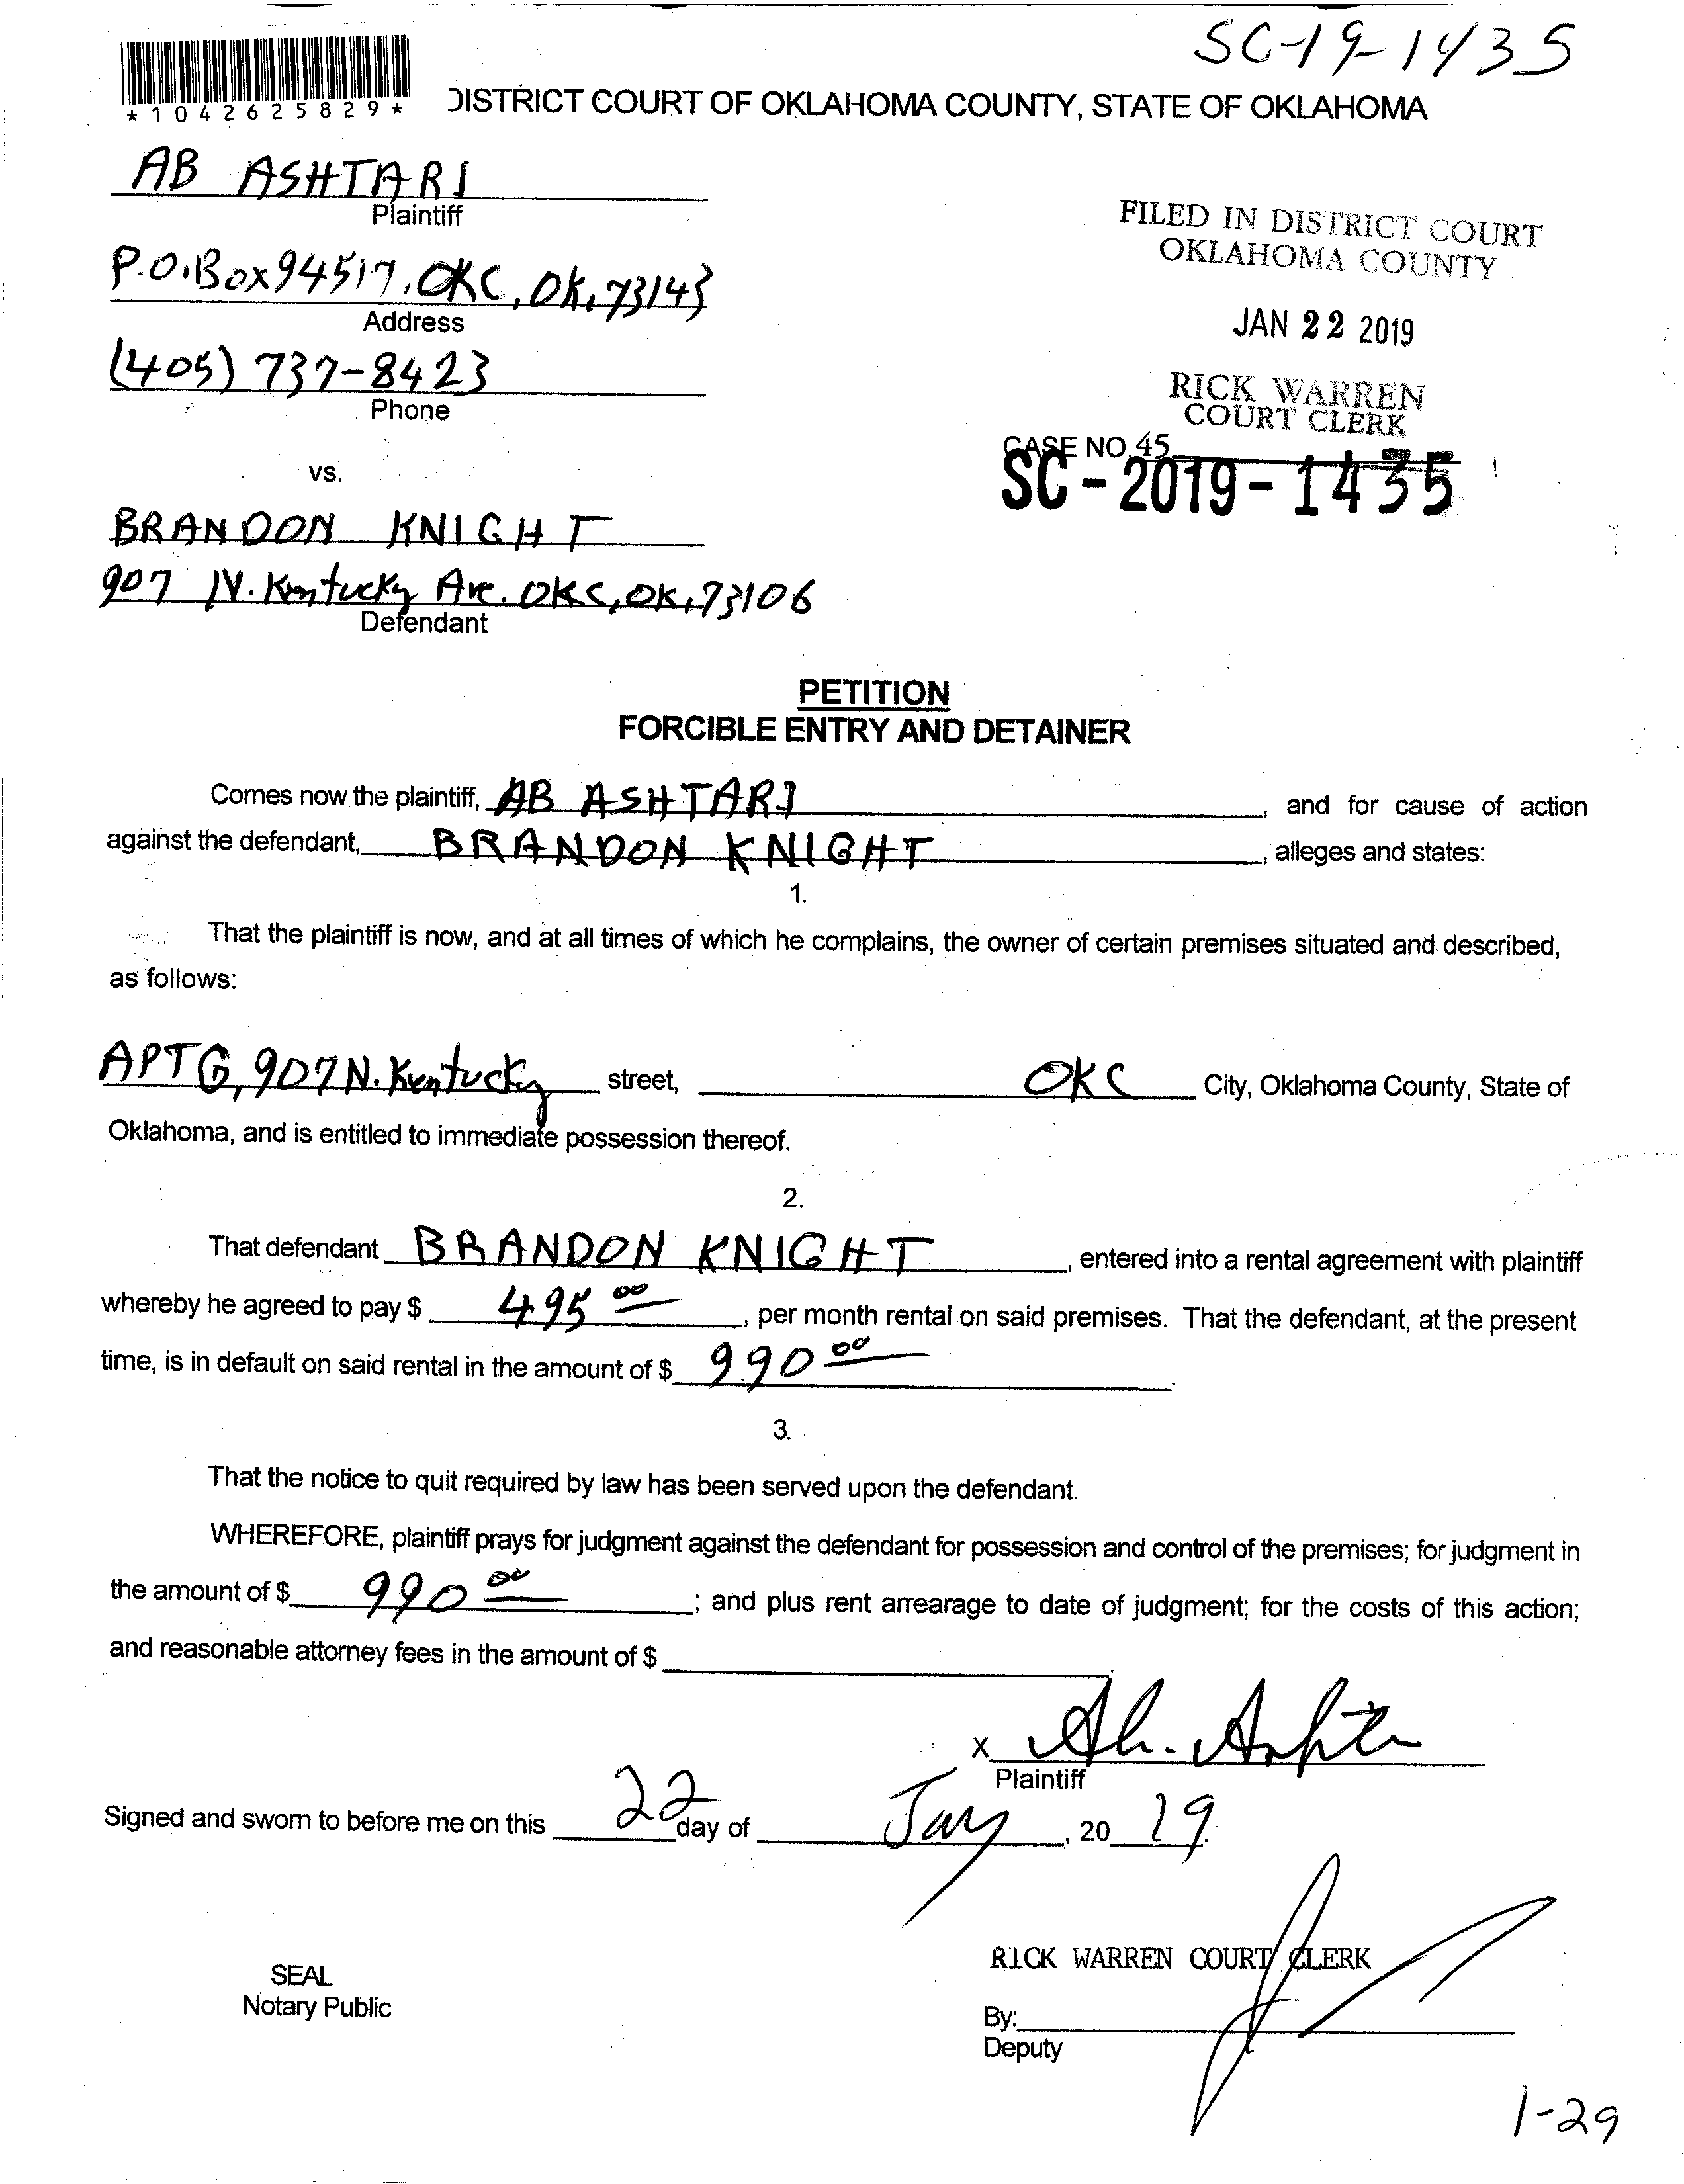 SC-19-1435
*1042625829*
DISTRICT COURT OF OKLAHOMA COUNTY, STATE OF OKLAHOMA
AB ASHTARI
Plaintiff
P.O.Box 94517, OKC, OK, 73143
Address
(405) 737-8423
Phone
FILED IN DISTRICT COURT
OKLAHOMA COUNTY
JAN 22 2019
RICK WARREN
COURT CLERK
CASE NO.45
SC-2019-1435
vs.
BRANDON KNIGHT
907 N. Kentucky Ave. OKC, OK, 73106
Defendant
PETITION
FORCIBLE ENTRY AND DETAINER
Comes now the plaintiff, AB ASHTARI, and for cause of action
against the defendant, BRANDON KNIGHT, alleges and states:
1.
That the plaintiff is now, and at all times of which he complains, the owner of certain premises situated and described,
as follows:
APT G, 907 N. Kentucky street, OKC City, Oklahoma County, State of
Oklahoma, and is entitled to immediate possession thereof.
2.
That defendant BRANDON KNIGHT, entered into a rental agreement with plaintiff
whereby he agreed to pay $ 495 00, per month rental on said premises. That the defendant, at the present
time, is in default on said rental in the amount of $ 990 00.
3.
That the notice to quit required by law has been served upon the defendant.
WHEREFORE, plaintiff prays for judgment against the defendant for possession and control of the premises; for judgment in
the amount of $ 990 00; and plus rent arrearage to date of judgment; for the costs of this action;
and reasonable attorney fees in the amount of $
X
Plaintiff
Signed and sworn to before me on this 22 day of Jan, 20 19.
SEAL
Notary Public
RICK WARREN COURT CLERK
By:
Deputy
1-29